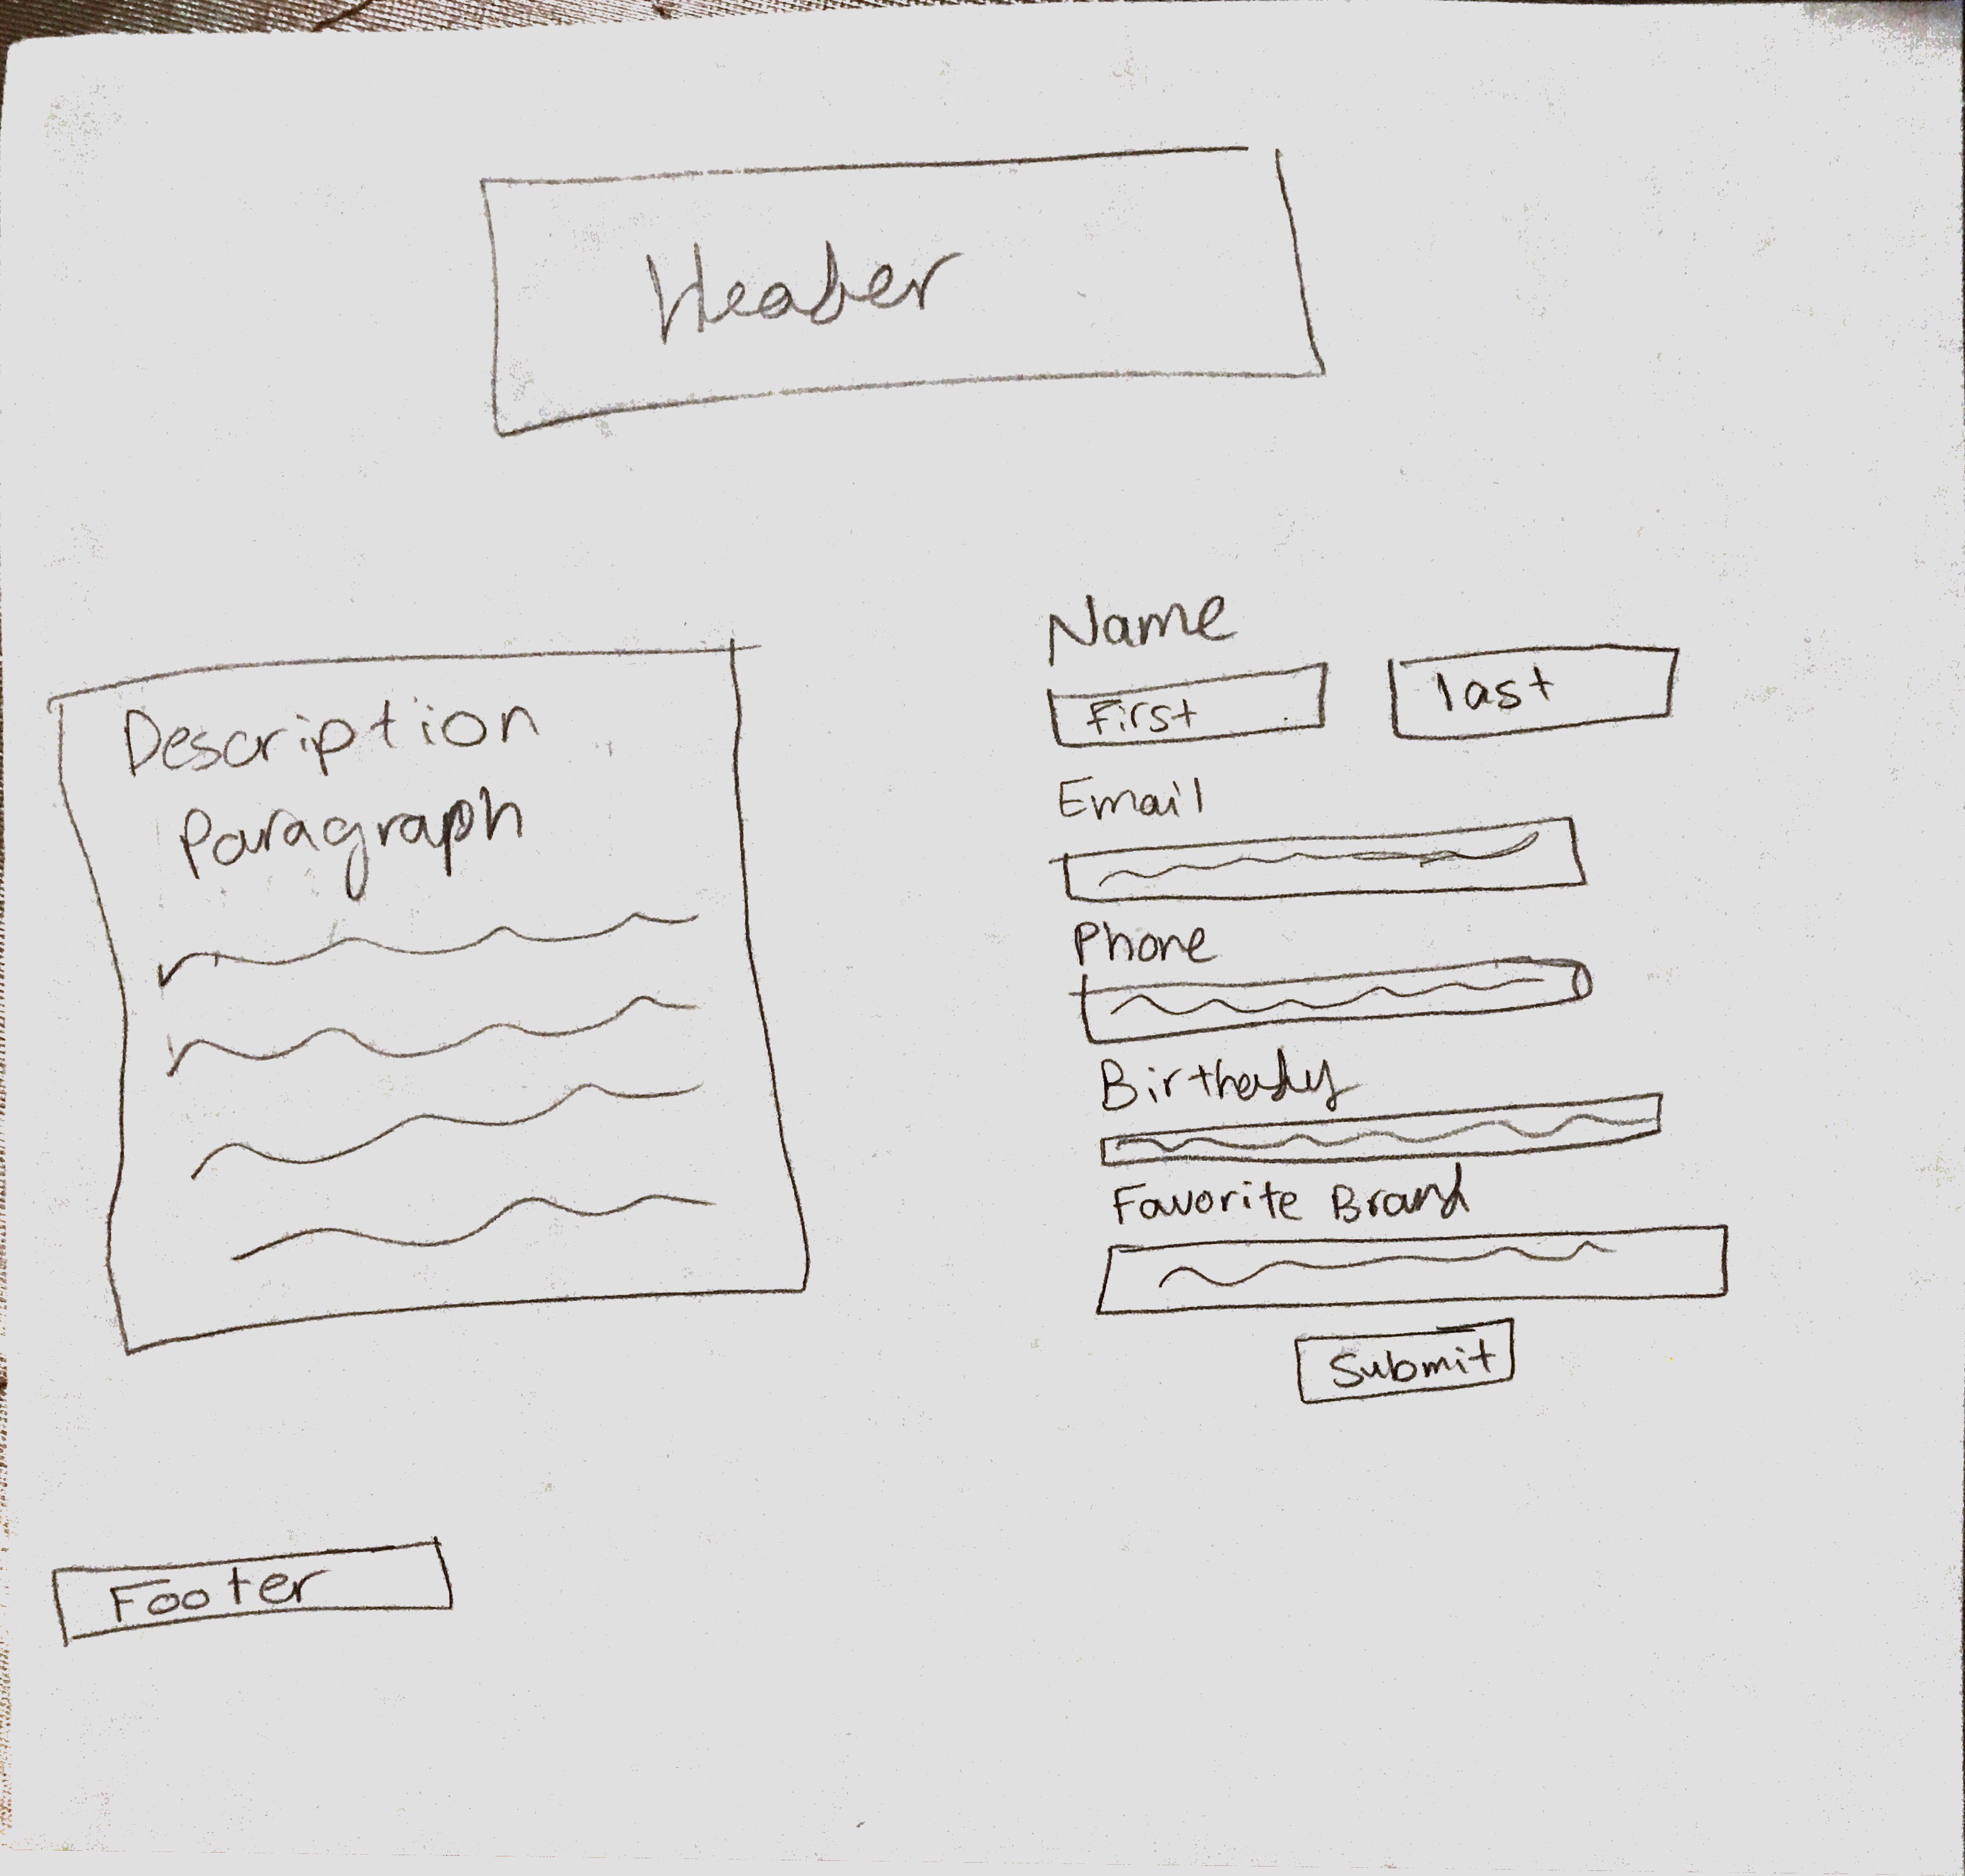 Header
Description
Paragraph
Name
First
last
Email
Phone
Birthday
Favorite Brand
Submit
Footer